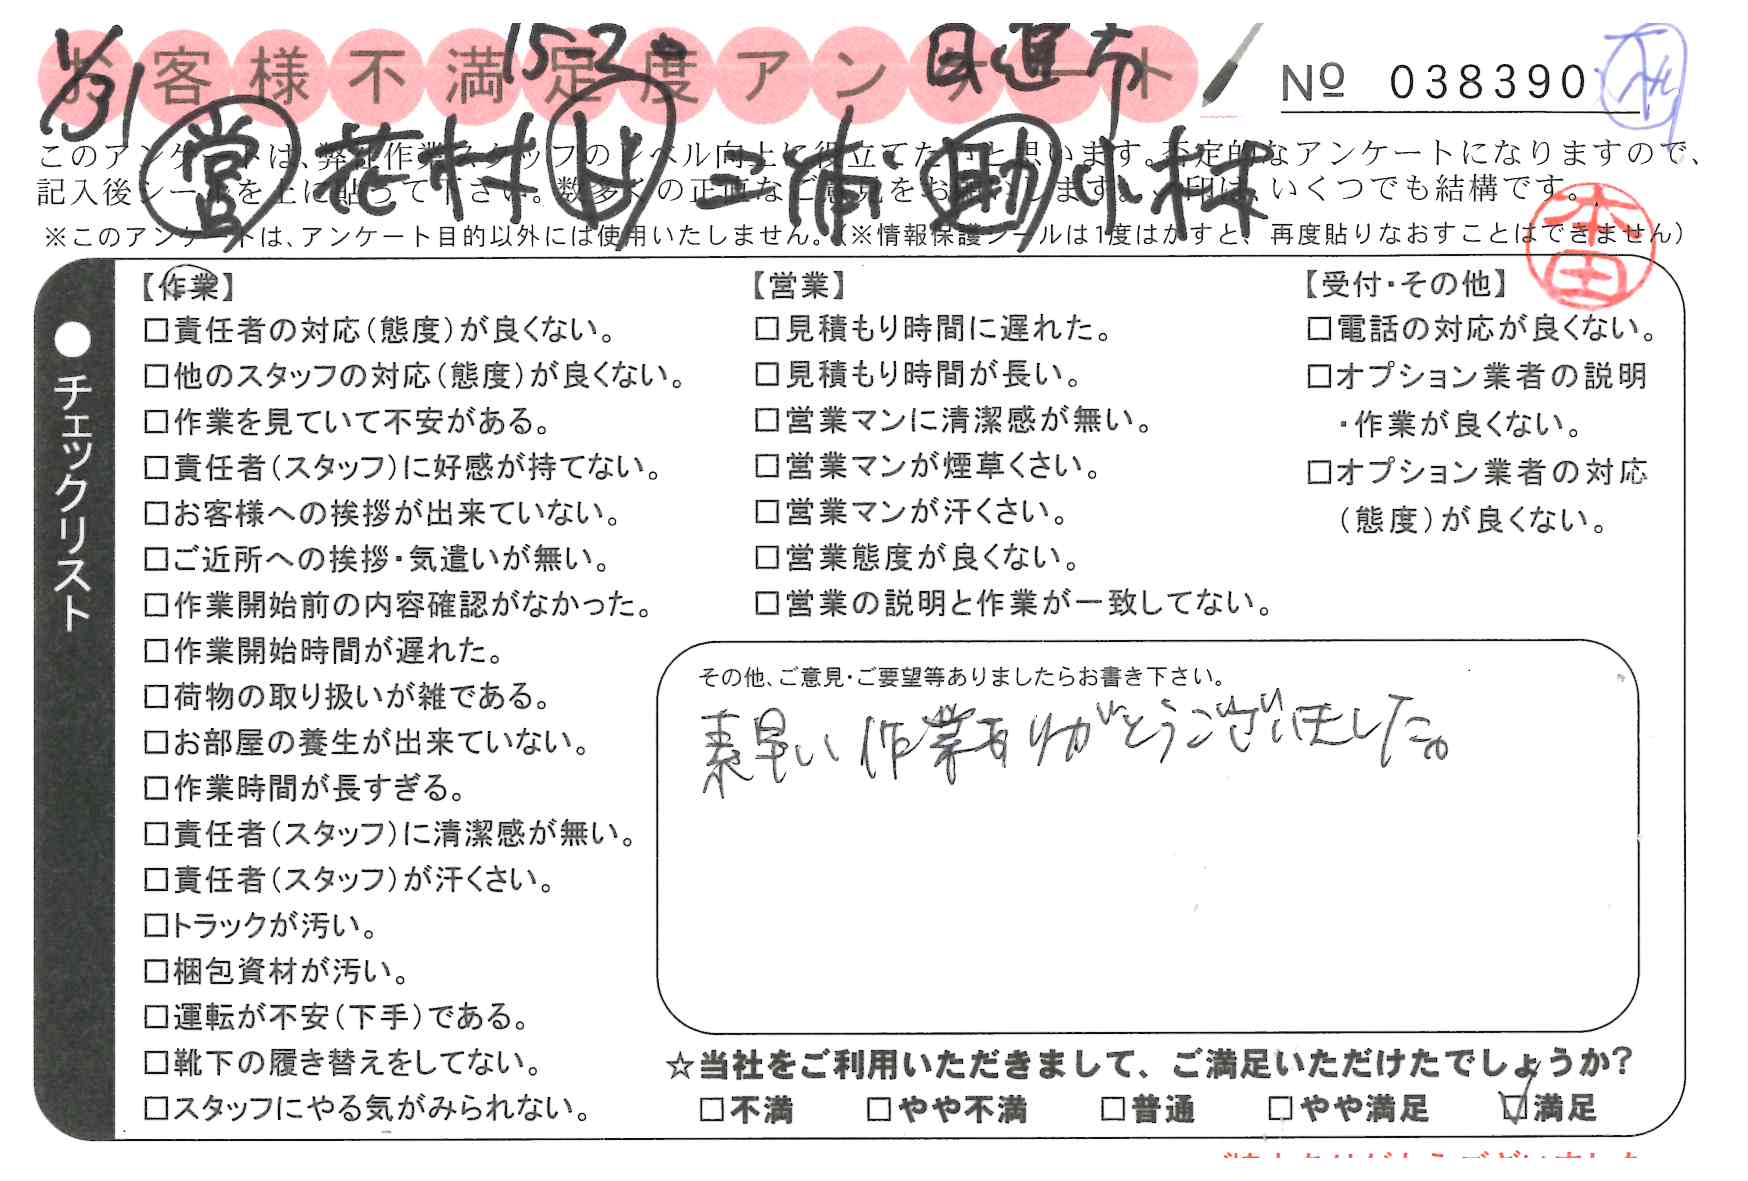 お客様不満足度アンケート
1/31 15-2 日進市
No 038390
営 花村 三浦 助 小林
このアンケートは、弊社作業スタッフのレベル向上に役立てたいと思います。否定的なアンケートになりますので、
記入後シールを上に貼って下さい。数多くの正直なご意見をお願いします。、印は、いくつでも結構です。
※このアンケートは、アンケート目的以外には使用いたしません。(※情報保護シールは1度はがすと、再度貼りなおすことはできません)
本田
●チェックリスト
【作業】
□責任者の対応(態度)が良くない。
□他のスタッフの対応(態度)が良くない。
□作業を見ていて不安がある。
□責任者(スタッフ)に好感が持てない。
□お客様への挨拶が出来ていない。
□ご近所への挨拶・気遣いが無い。
□作業開始前の内容確認がなかった。
□作業開始時間が遅れた。
□荷物の取り扱いが雑である。
□お部屋の養生が出来ていない。
□作業時間が長すぎる。
□責任者(スタッフ)に清潔感が無い。
□責任者(スタッフ)が汗くさい。
□トラックが汚い。
□梱包資材が汚い。
□運転が不安(下手)である。
□靴下の履き替えをしてない。
□スタッフにやる気がみられない。
【営業】
□見積もり時間に遅れた。
□見積もり時間が長い。
□営業マンに清潔感が無い。
□営業マンが煙草くさい。
□営業マンが汗くさい。
□営業態度が良くない。
□営業の説明と作業が一致してない。
【受付・その他】
□電話の対応が良くない。
□オプション業者の説明
・作業が良くない。
□オプション業者の対応
(態度)が良くない。
その他、ご意見・ご要望等ありましたらお書き下さい。
素早い作業ありがとうございました。
☆当社をご利用いただきまして、ご満足いただけたでしょうか?
□不満 □やや不満 □普通 □やや満足 ☑満足